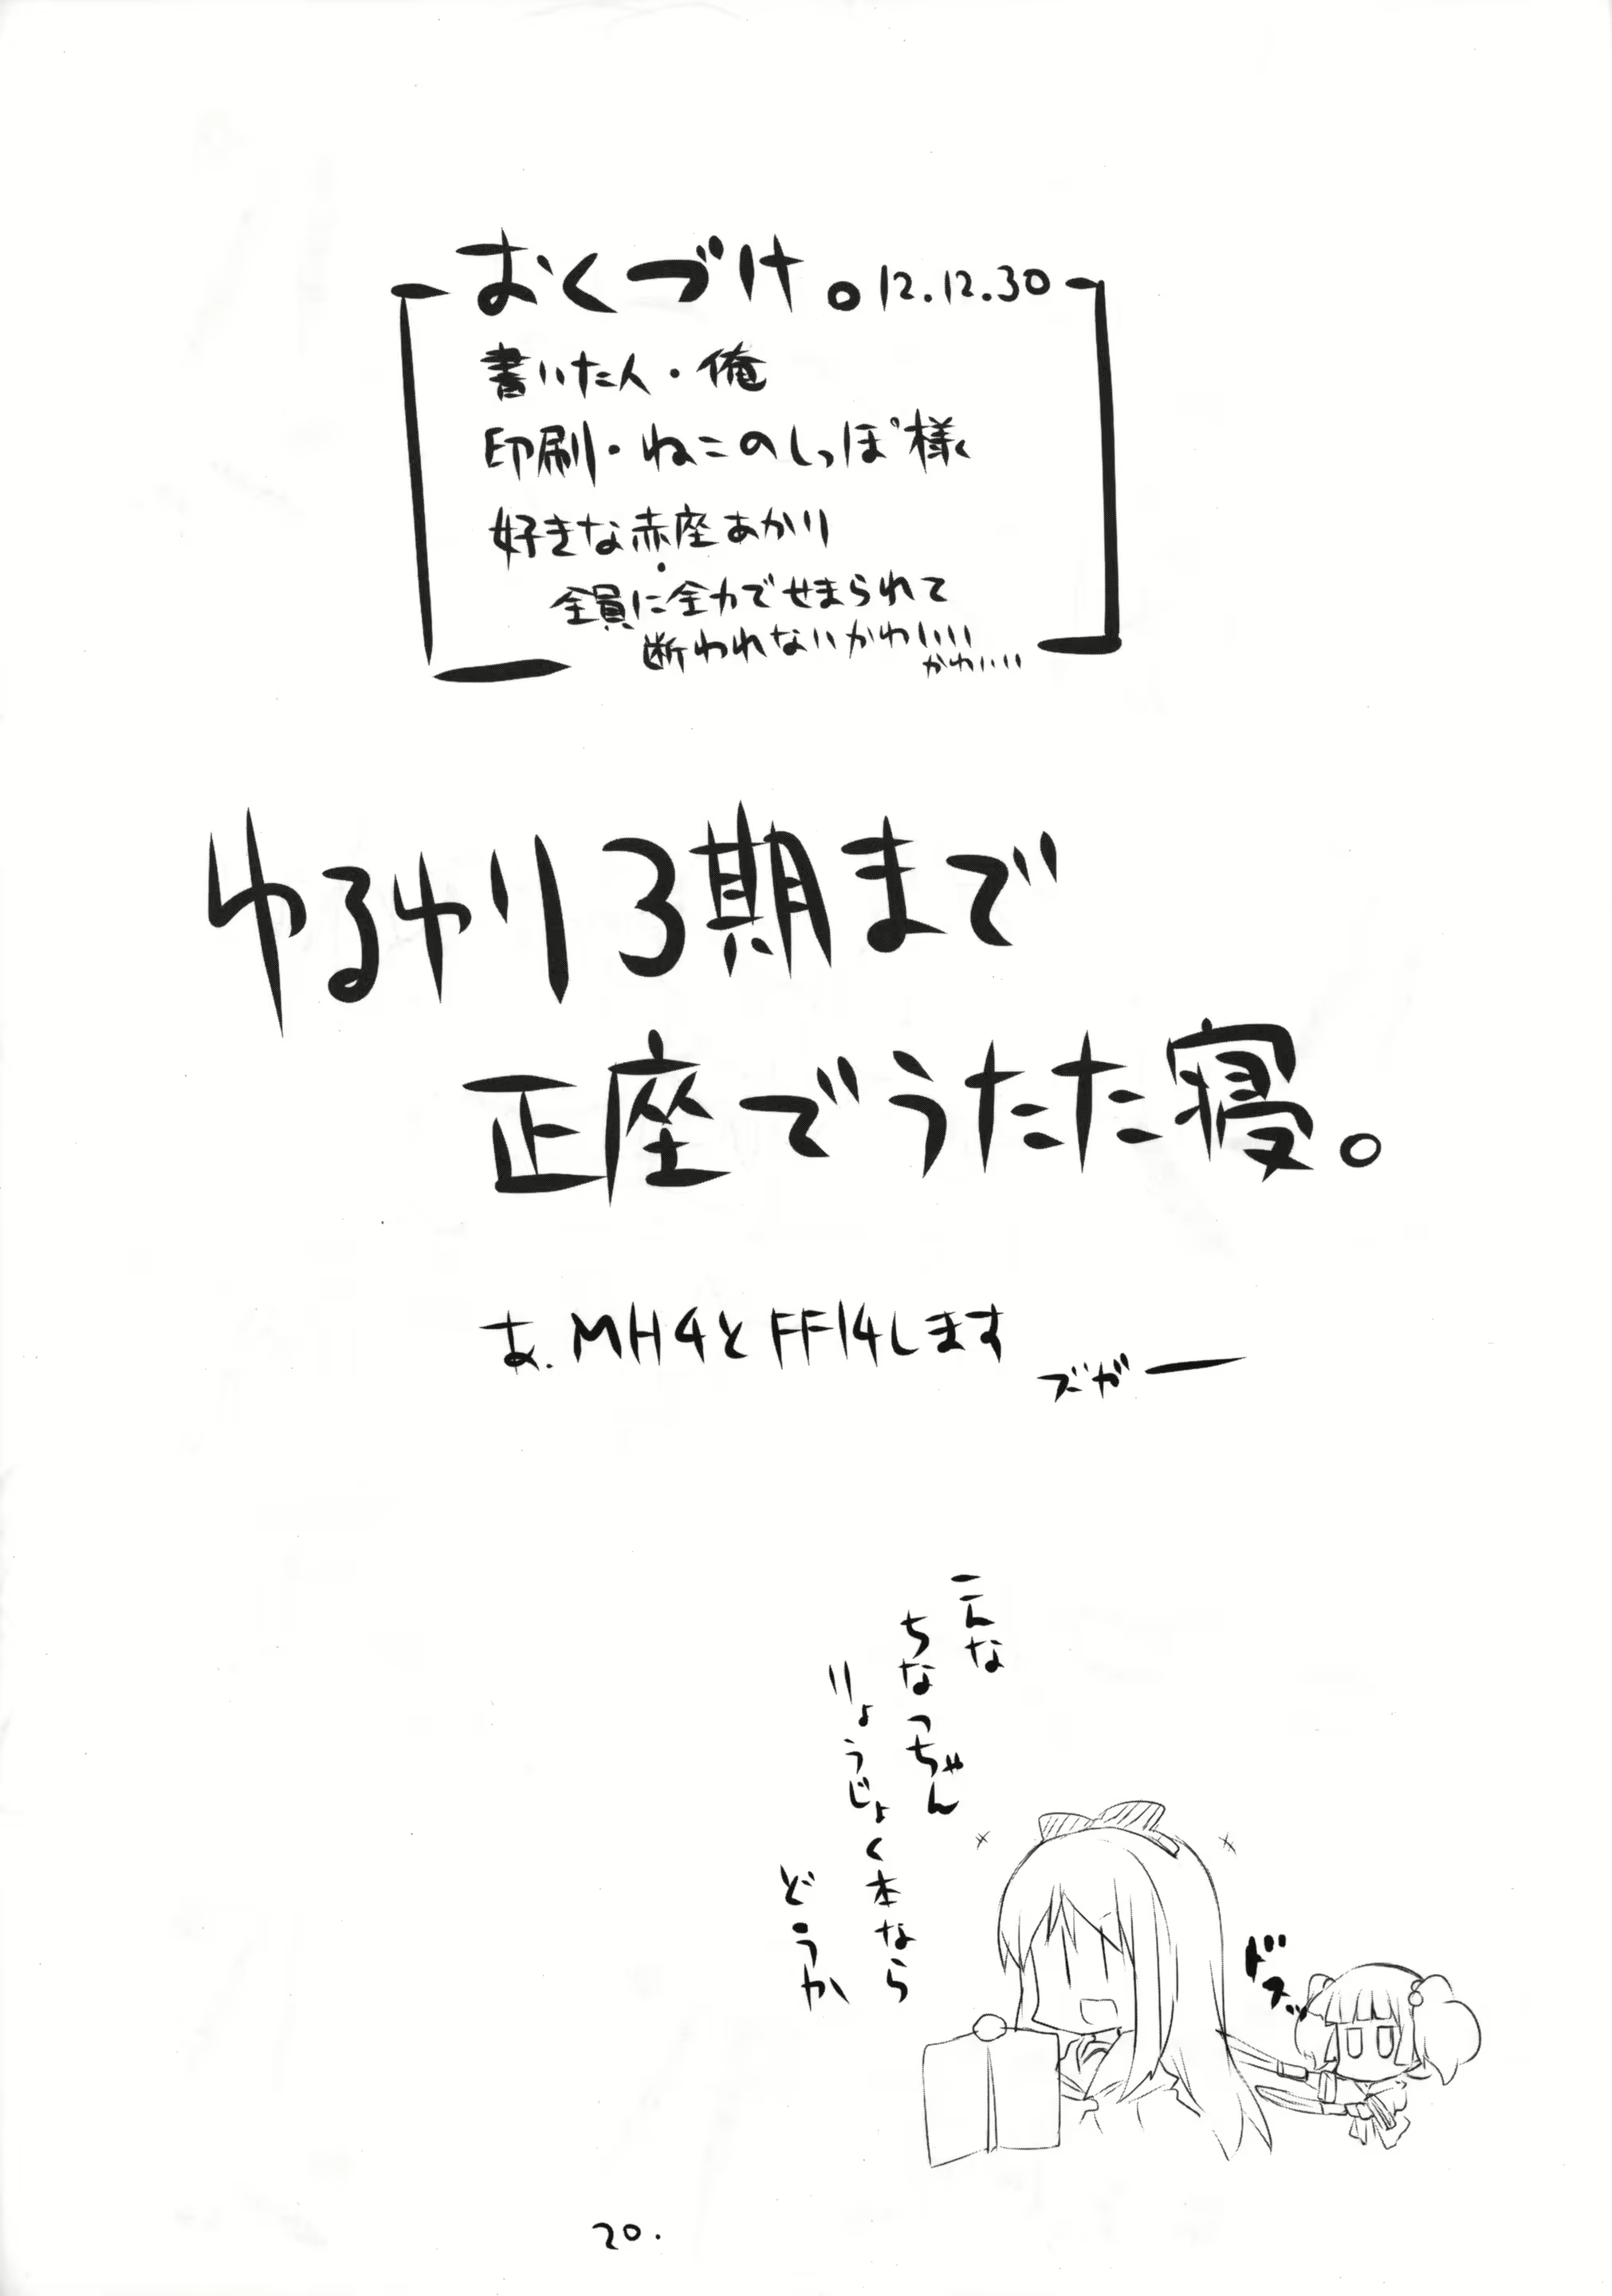 おくづけ。12.12.30
書いた人・俺
印刷・ねこのしっぽ様
好きな赤座あかり
・
全員に全力でせまられて
断われないかわいい
かわいい
ゆるゆり3期まで
正座でうたた寝。
あ.MH4とFF14します
ズガー
こんな
ちなっちゃん
りょうじょく本なら
どうか
ドスッ
20.